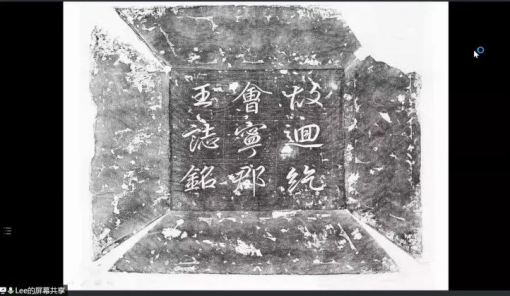 故迴紇
會寧郡
王誌銘
Lee的屏幕共享